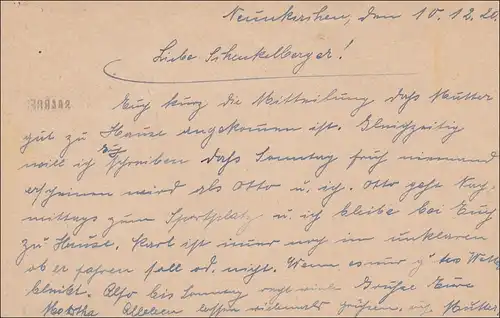 Neunkirchen, den 10.12.20.
Liebe Schenkelberger!
Euch kurz die Mitteilung dass Mutter
gut zu Hause angekommen ist. Gleichzeitig
will ich Euch schreiben dass Sonntag früh niemand
erscheinen wird als Otto u. ich. Otto geht Nach-
mittags zum Sportplatz u. ich bleibe bei Euch
zu Hause. Karl ist immer noch im unklaren
ob er fahren soll od. nicht. Wenn es nur
bleibt. Also bis Sonntag Grüße Eure
Martha lassen vielmals grüßen, Mutter